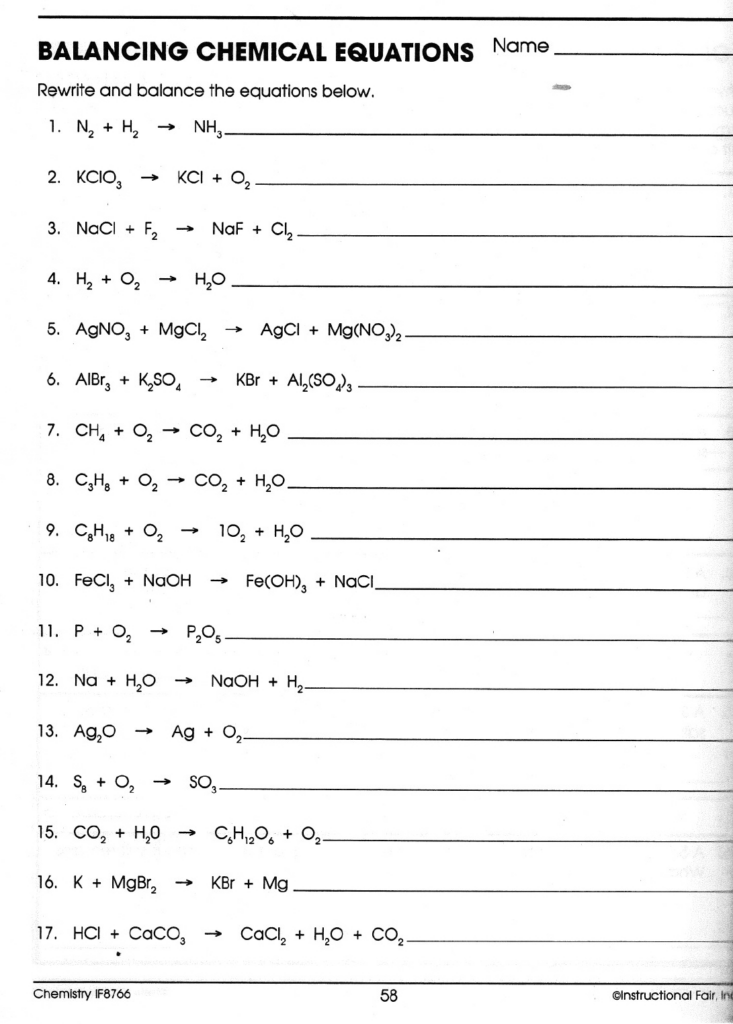 BALANCING CHEMICAL EQUATIONS Name
Rewrite and balance the equations below.
1. N₂ + H₂ → NH₃
2. KClO₃ → KCl + O₂
3. NaCl + F₂ → NaF + Cl₂
4. H₂ + O₂ → H₂O
5. AgNO₃ + MgCl₂ → AgCl + Mg(NO₃)₂
6. AlBr₃ + K₂SO₄ → KBr + Al₂(SO₄)₃
7. CH₄ + O₂ → CO₂ + H₂O
8. C₃H₈ + O₂ → CO₂ + H₂O
9. C₈H₁₈ + O₂ → 1O₂ + H₂O
10. FeCl₃ + NaOH → Fe(OH)₃ + NaCl
11. P + O₂ → P₂O₅
12. Na + H₂O → NaOH + H₂
13. Ag₂O → Ag + O₂
14. S₈ + O₂ → SO₃
15. CO₂ + H₂0 → C₆H₁₂O₆ + O₂
16. K + MgBr₂ → KBr + Mg
17. HCl + CaCO₃ → CaCl₂ + H₂O + CO₂
Chemistry IF8766 58 ©Instructional Fair,